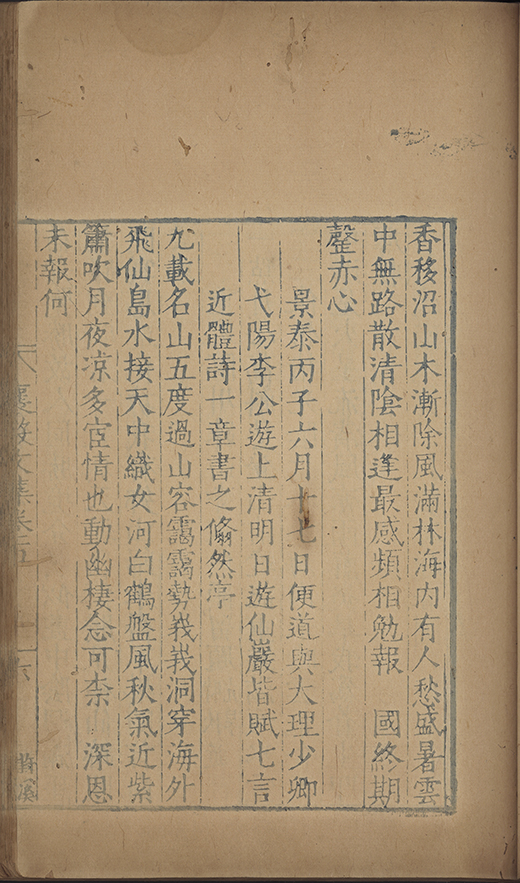 香移沼山木漸除風滿林海内有人愁盛暑雲
中無路散清陰相逢最感頻相勉報　國終期
罄赤心
景泰丙子六月十七日便道與大理少卿
弋陽李公遊上清明日遊仙巖皆賦七言
近體詩一章書之翛然亭
九載名山五度過山容靄靄勢峩峩洞穿海外
飛仙島水接天中織女河白鶴盤風秋氣近紫
簫吹月夜凉多宦情也動幽棲念可柰　深恩
未報何